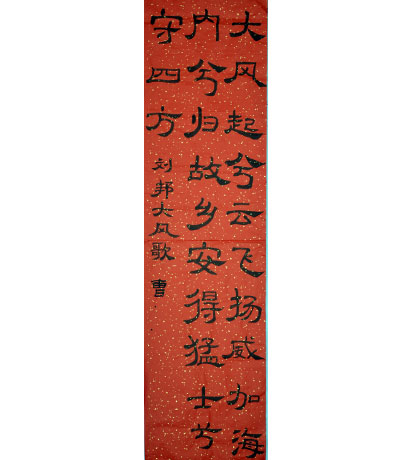 大风起兮云飞扬威加海
内兮归故乡安得猛士兮
守四方
刘邦大风歌 曹